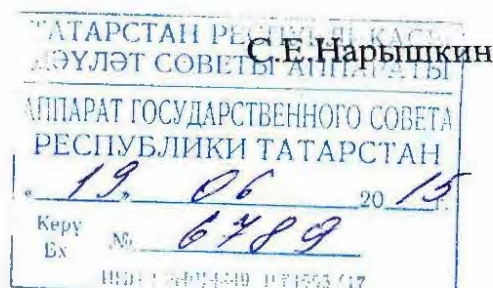 С.Е.Нарышкин
ТАТАРСТАН РЕСПУБЛИКАСЫ
ДӘҮЛӘТ СОВЕТЫ АППАРАТЫ
АППАРАТ ГОСУДАРСТВЕННОГО СОВЕТА
РЕСПУБЛИКИ ТАТАРСТАН
« 19 » 06 20 15 г.
Керү
Вх № 6789